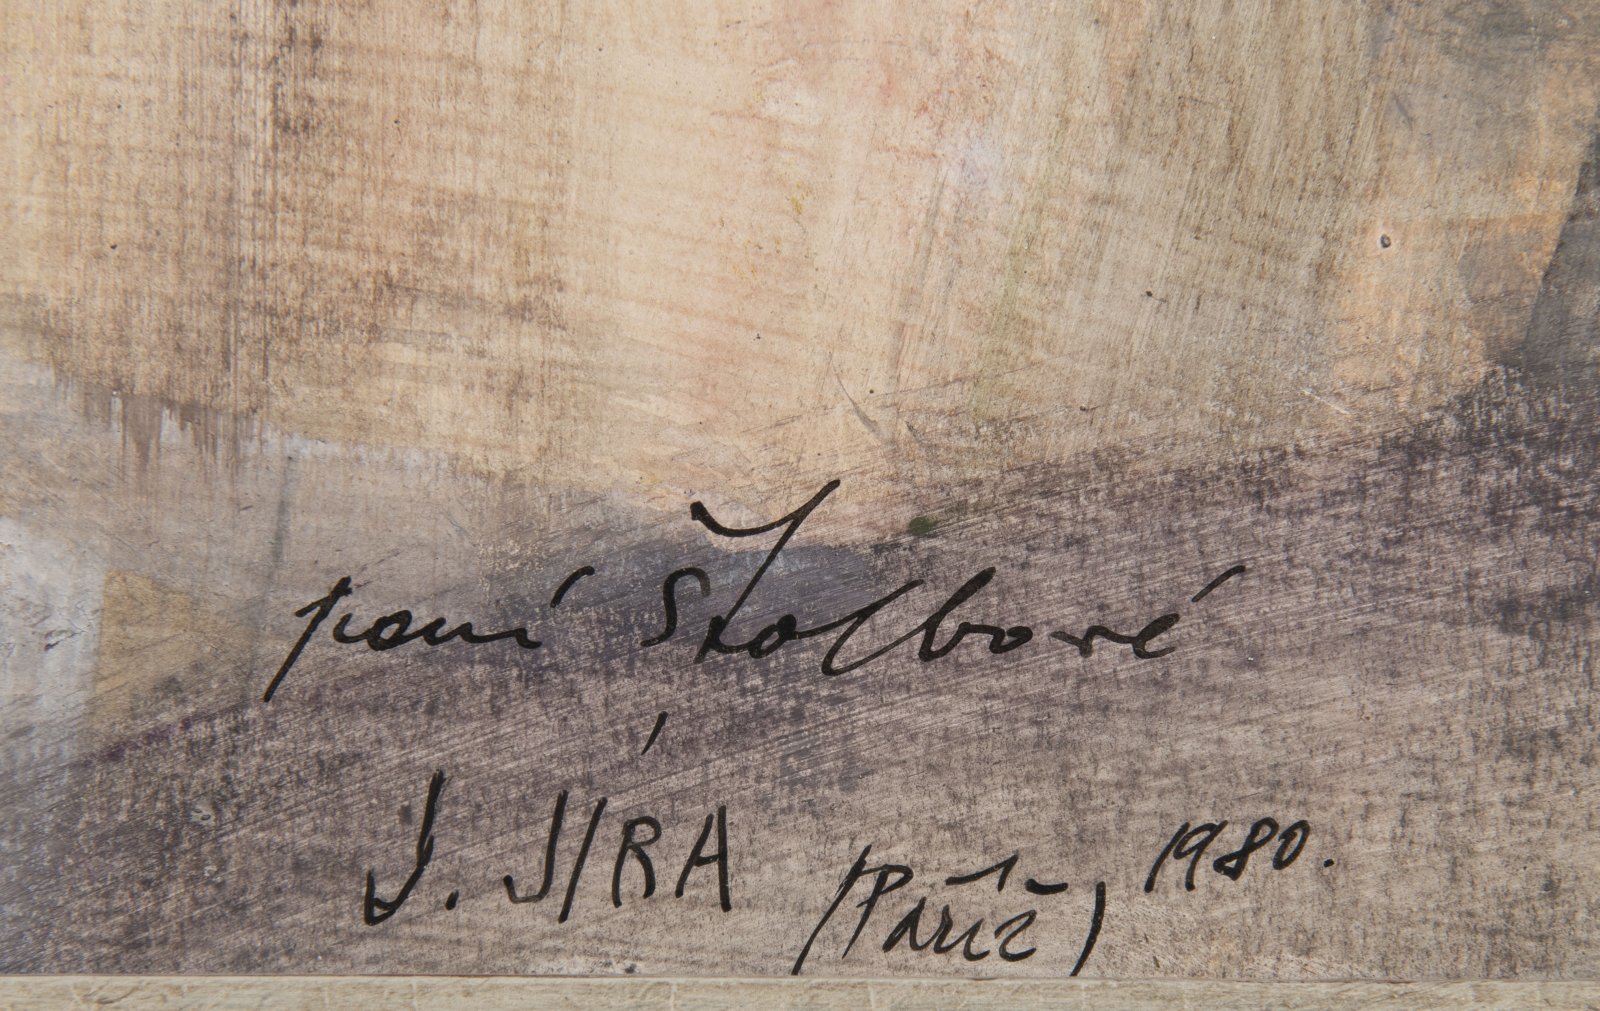 paní Štolbové
J. JÍRA (Paříž), 1980.